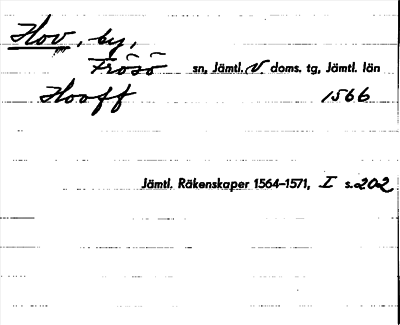 Hov, by,
Frösö sn, Jämtl. V. doms. tg, Jämtl. län
Hooff 1566
Jämtl. Räkenskaper 1564–1571, I s. 202